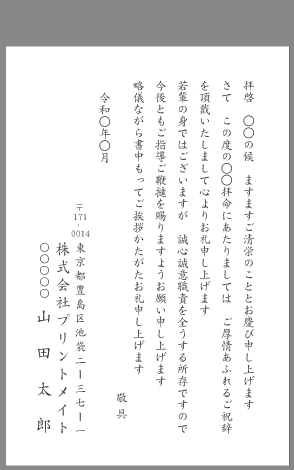 拝啓　〇〇の候　ますますご清栄のこととお慶び申し上げます
さて　この度の〇〇拝命にあたりましては　ご厚情あふれるご祝辞
を頂戴いたしまして心よりお礼申し上げます
若輩の身ではございますが　誠心誠意職責を全うする所存ですので
今後ともご指導ご鞭撻を賜りますようお願い申し上げます
略儀ながら書中もってご挨拶かたがたお礼申し上げます
敬具
令和〇年〇月
〒171-0014
東京都豊島区池袋二ー三七ー一
株式会社プリントメイト
〇〇〇〇〇　山田太郎